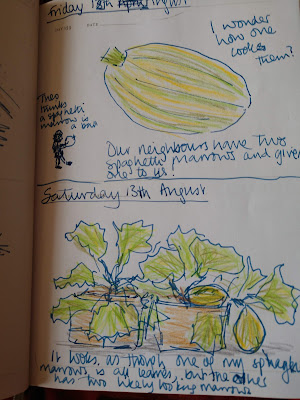 Friday 12th August
I wonder
how one
cooks
them?
Theo
thinks
a spaghetti
marrow is
a ball
Our neighbours have two
spaghetti marrows and given
one to us!
Saturday 13th August
It looks, as though one of my
marrows is all leaves, but the others
has two likely looking marrows